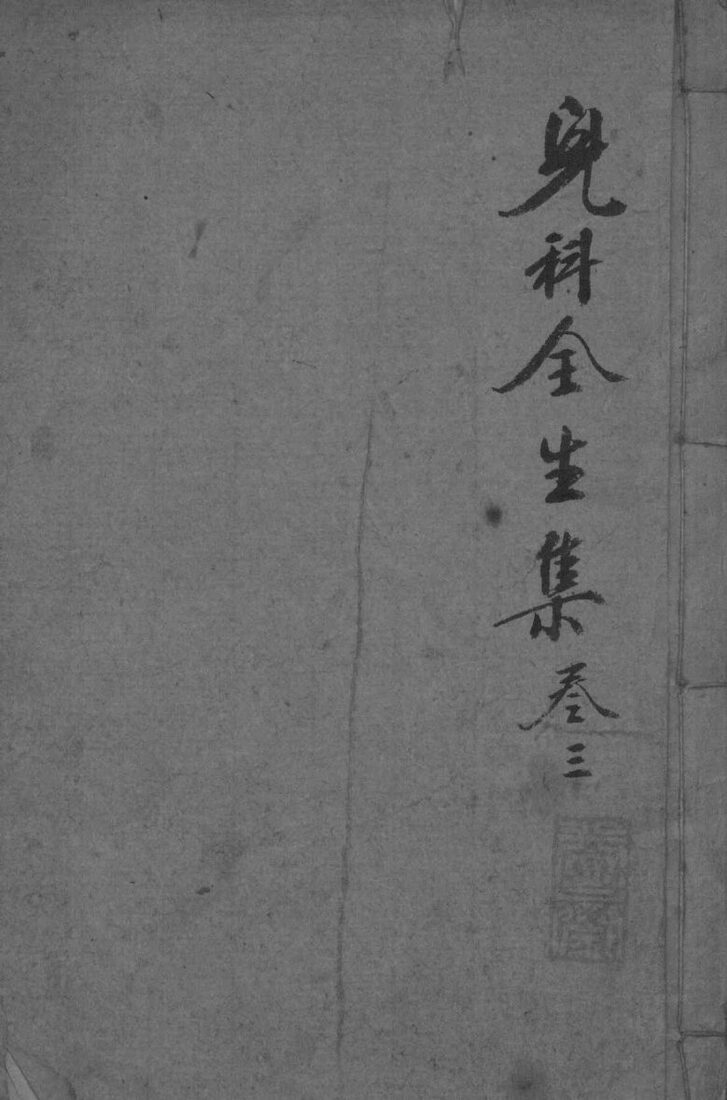 兒科全生集卷三